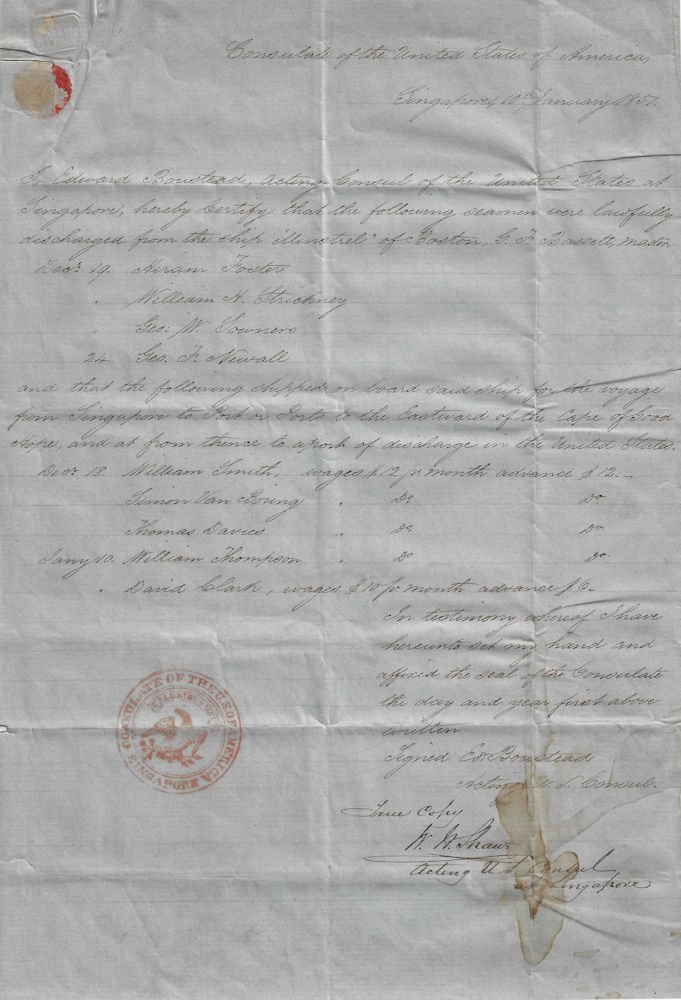 Consulate of the United States of America,
Singapore, 10th January 1851.
I, Edward Boustead, Acting Consul of the United States at
Singapore, hereby Certify that the following seamen were lawfully
discharged from the ship "Minstrel" of Boston, G. F. Bassett, master,
Decr. 19. Hiram Foster
" William H. Strickney
" Geo: W. Sowners
24. Geo. F. Newall
and that the following shipped on board said ship for the voyage
from Singapore to Port or Ports to the Eastward of the Cape of Good
Hope, and at from thence to a port of discharge in the United States.
Decr. 18. William Smith, wages $12 pr month advance $12.
Simon Van Boring " Do Do
Thomas Davies " Do Do
Jany 10. William Thompson " Do Do
" David Clark, wages $10 pr month advance $6.
In testimony whereof I have
hereunto set my hand and
affixed the seal of the Consulate
the day and year first above
written
Signed Ed. Boustead
Acting U. S. Consul.
CONSULATE OF THE U.S. OF AMERICA
SINGAPORE
True Copy
W. W. Shaw
Acting U S Consul
at Singapore